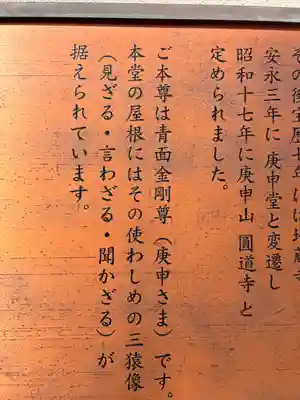 安永三年に庚申堂と変遷し
昭和十七年に庚申山 圓道寺 と
定められました。
ご本尊は青面金剛尊（庚申さま）です。
本堂の屋根にはその使わしめの三猿像
（見ざる・言わざる・聞かざる）が
据えられています。